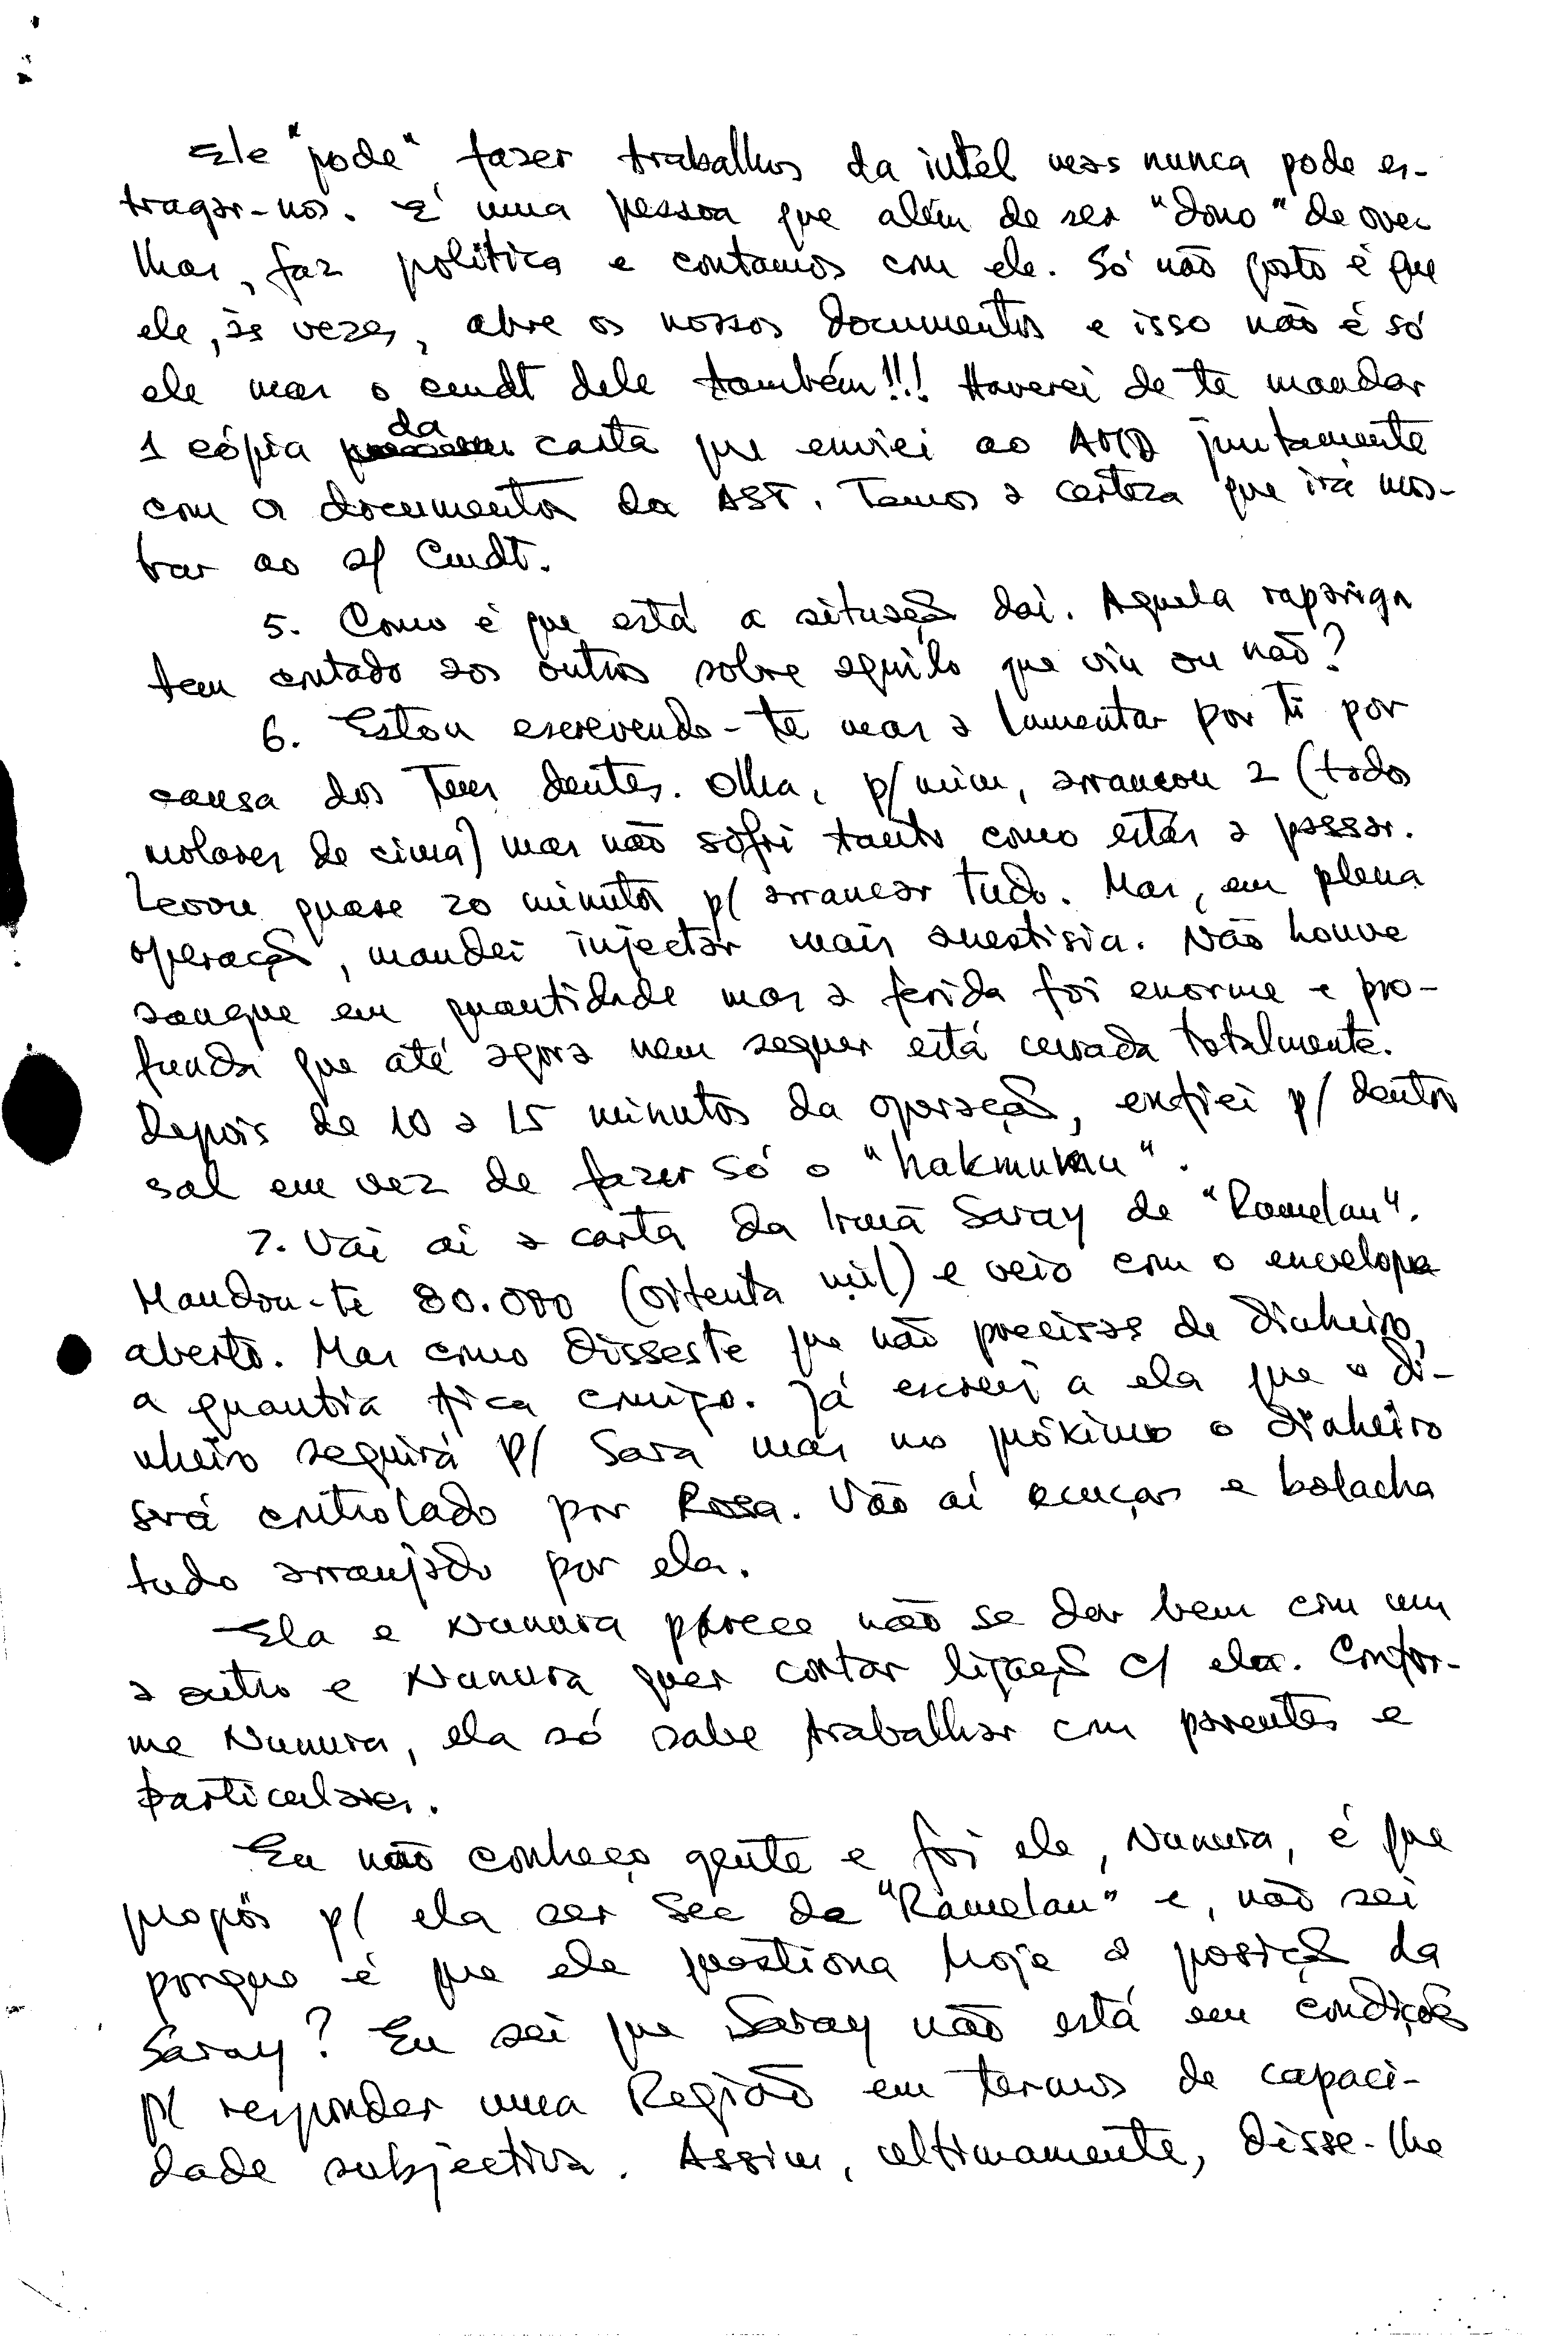 Ele "pode" fazer trabalhos da intel mas nunca pode es-
tragar-nos. É uma pessoa que além de ser "dono" de ove-
lhas, faz política e contamos com ele. Só não gosto é que
ele, às vezes, abre os nossos documentos e isso não é só
ele mas o cmdt dele também!!! Haverei de te mandar
1 cópia da carta que enviei ao AMD juntamente
com os documentos da AST. Temos a certeza que irá mos-
trar ao s/ Cmdt.
5. Como é que está a situação daí. Aquela rapariga
tem contado aos outros sobre aquilo que viu ou não?
6. Estou escrevendo-te mas a lamentar por ti por
causa dos teus dentes. Olha, p/ mim, arrancou 2 (todos
molares de cima) mas não sofri tanto como estás a passar.
Levou quase 20 minutos p/ arrancar tudo. Mas, em plena
operação, mandei injectar mais anestisia. Não houve
sangue em quantidade mas a ferida foi enorme e pro-
funda que até agora nem sequer está cerrada totalmente.
Depois de 10 a 15 minutos da operação, enfiei p/ dentro
sal em vez de fazer só o "hakmumu".
7. Vai aí a carta da Irmã Saray de "Ramelau".
Mandou-te 80.000 (oitenta mil) e veio com o envelope
aberto. Mas como disseste que não precisas de dinheiro,
a quantia fica comigo. Já escrevi a ela que o di-
nheiro seguirá p/ Sara mas no próximo o dinheiro
será controlado por Rosa. Vão aí acuças e bolacha
tudo arranjado por ela.
Ela e Nunura parece não se dar bem com um
a outro e Nunura quer cortar ligação c/ ela. Confor-
me Nunura, ela só sabe trabalhar com parentes e
particulares.
Eu não conheço gente e foi ele, Nunura, é que
propôs p/ ela ser Sec de "Ramelau" e, não sei
porque é que ele questiona hoje a posição da
Saray? Eu sei que Saray não está em condições
p/ responder uma Região em termos de capaci-
dade subjectiva. Assim, ultimamente, disse-lhe